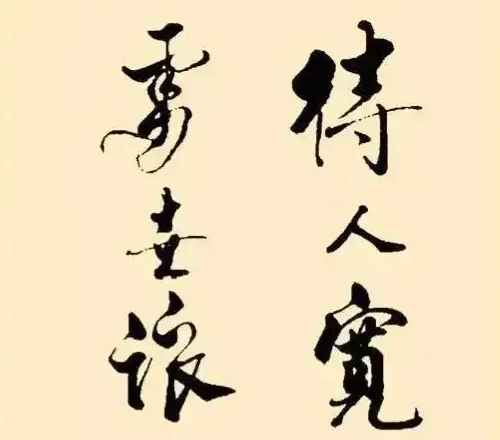 待人寬
處世